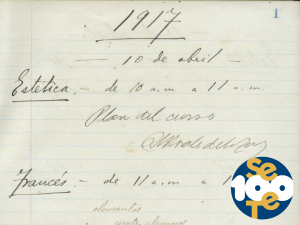 1917
1
— 10 de abril —
Estética. — de 10 a.m a 11 a.m.
Plan del curso
Francés. — de 11 a.m. a 1
elementos
SeTe
100